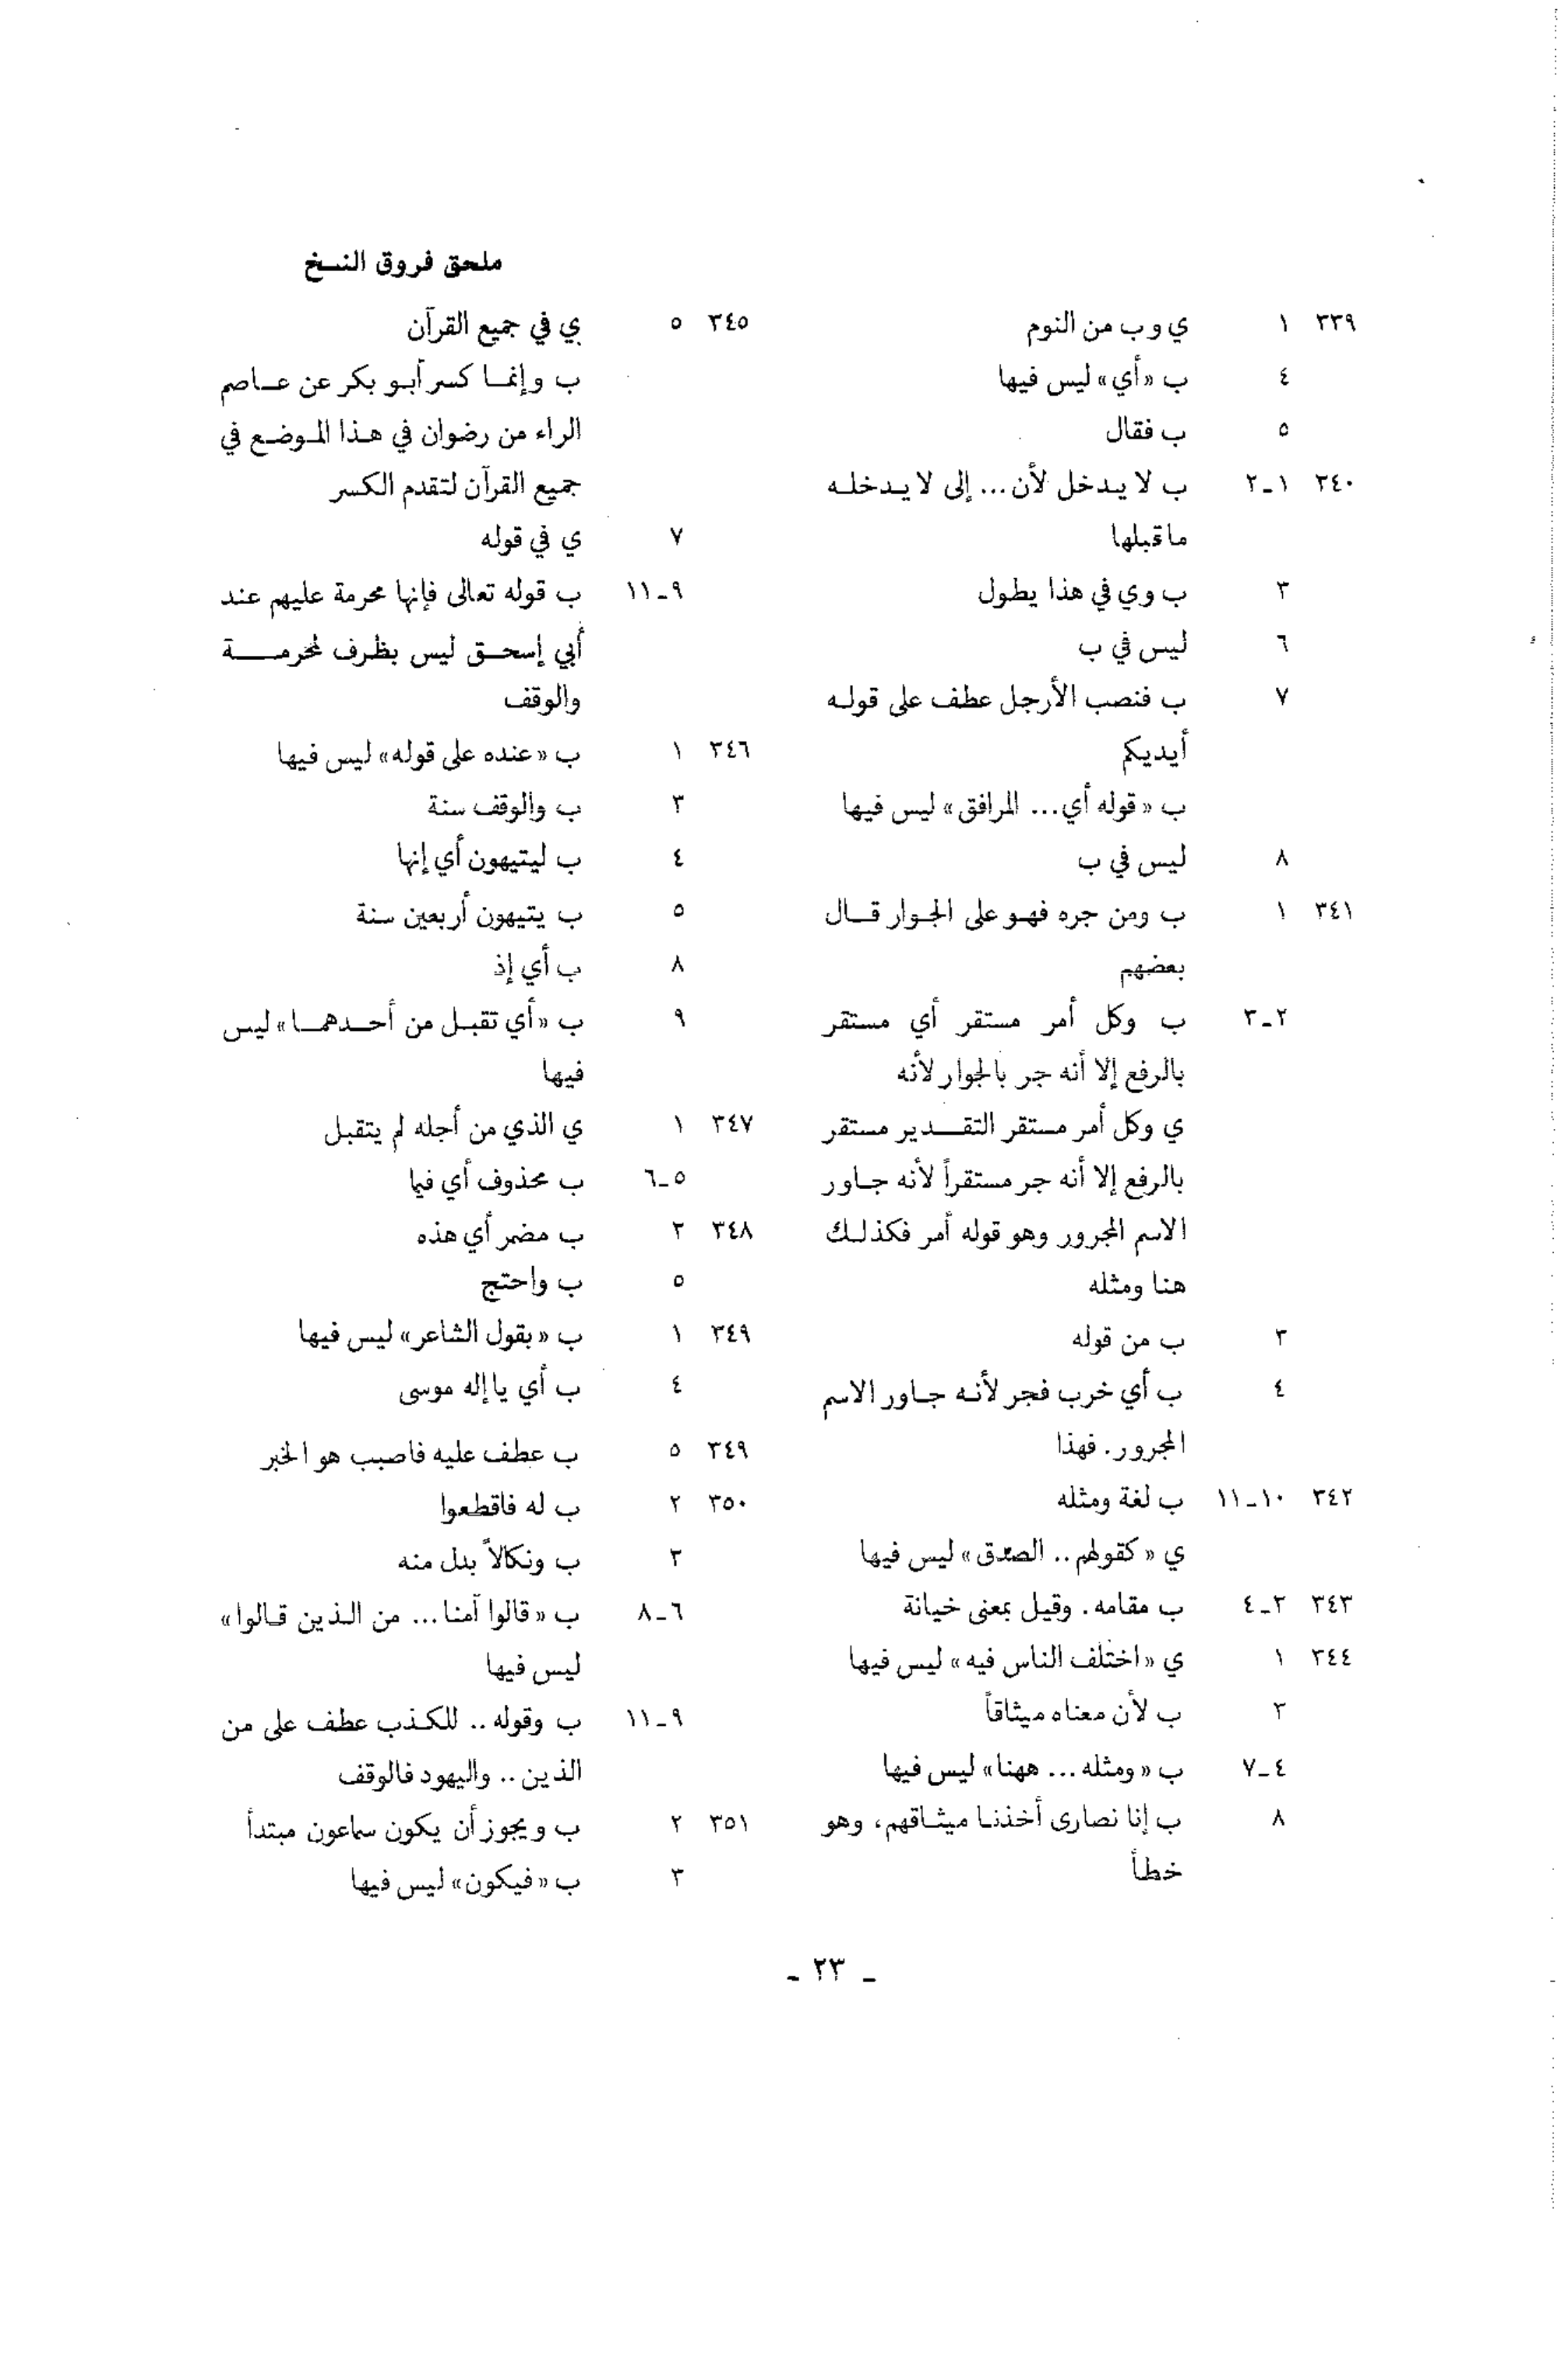 ملحق فروق النسخ
٣٣٩ ١ ي وب من النوم
٤ ب «أي» ليس فيها
٥ ب فقال
٣٤٠ ١ـ٢ ب لا يدخل لأن... إلى لا يدخله
ماقبلها
٣ ب وي في هذا يطول
٦ ليس في ب
٧ ب فنصب الأرجل عطف على قوله
أيديكم
ب «قوله أي... المرافق» ليس فيها
٨ ليس في ب
٣٤١ ١ ب ومن جره فهو على الجوار قال
بعضهم
٢ـ٣ ب وكل أمر مستقر أي مستقر
بالرفع إلا أنه جر بالجوار لأنه
ي وكل أمر مستقر التقدير مستقر
بالرفع إلا أنه جر مستقراً لأنه جاور
الاسم المجرور وهو قوله أمر فكذلك
هنا ومثله
٣ ب من قوله
٤ ب أي خرب فجر لأنه جاور الاسم
المجرور. فهذا
٣٤٢ ١٠ـ١١ ب لغة ومثله
ي «كقولهم.. الصدق» ليس فيها
٣٤٣ ٢ـ٤ ب مقامه. وقيل بمعنى خيانة
٣٤٤ ١ ي «اختلف الناس فيه» ليس فيها
٣ ب لأن معناه ميثاقاً
٤ـ٧ ب «ومثله... ههنا» ليس فيها
٨ ب إنا نصارى أخذنا ميثاقهم، وهو
خطأ
٣٤٥ ٥ ي في جميع القرآن
ب وإنما كسر أبو بكر عن عاصم
الراء من رضوان في هذا الموضع في
جميع القرآن لتقدم الكسر
٧ ي في قوله
٩ـ١١ ب قوله تعالى فإنها محرمة عليهم عند
أبي إسحق ليس بظرف لمحرمة
والوقف
٣٤٦ ١ ب «عنده على قوله» ليس فيها
٣ ب والوقف سنة
٤ ب ليتيهون أي إنها
٥ ب يتيهون أربعين سنة
٨ ب أي إذ
٩ ب «أي تقبل من أحدهما» ليس
فيها
٣٤٧ ١ ي الذي من أجله لم يتقبل
٥ـ٦ ب محذوف أي فيما
٣٤٨ ٣ ب مضمر أي هذه
٥ ب واحتج
٣٤٩ ١ ب «بقول الشاعر» ليس فيها
٤ ب أي ياإله موسى
٣٤٩ ٥ ب عطف عليه فاصبب هو الخبر
٣٥٠ ٢ ب له فاقطعوا
٣ ب ونكالاً بدل منه
٦ـ٨ ب «قالوا آمنا... من الذين قالوا»
ليس فيها
٩ـ١١ ب وقوله.. للكذب عطف على من
الذين.. واليهود فالوقف
٣٥١ ٢ ب ويجوز أن يكون سماعون مبتدأ
٣ ب «فيكون» ليس فيها
ـ ٢٣ ـ